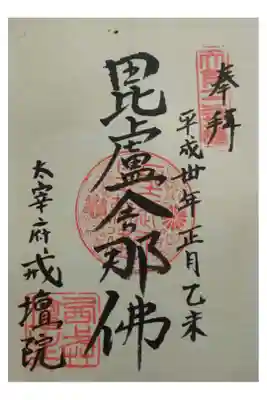 奉拜
平成卅年 正月 乙未
毘盧舍那佛
太宰府戒壇院